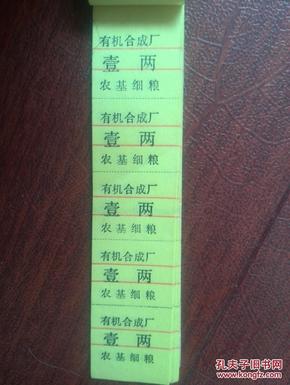 有机合成厂
壹 两
农基细粮
有机合成厂
壹 两
农基细粮
有机合成厂
壹 两
农基细粮
有机合成厂
壹 两
农基细粮
有机合成厂
壹 两
农基细粮
孔夫子旧书网